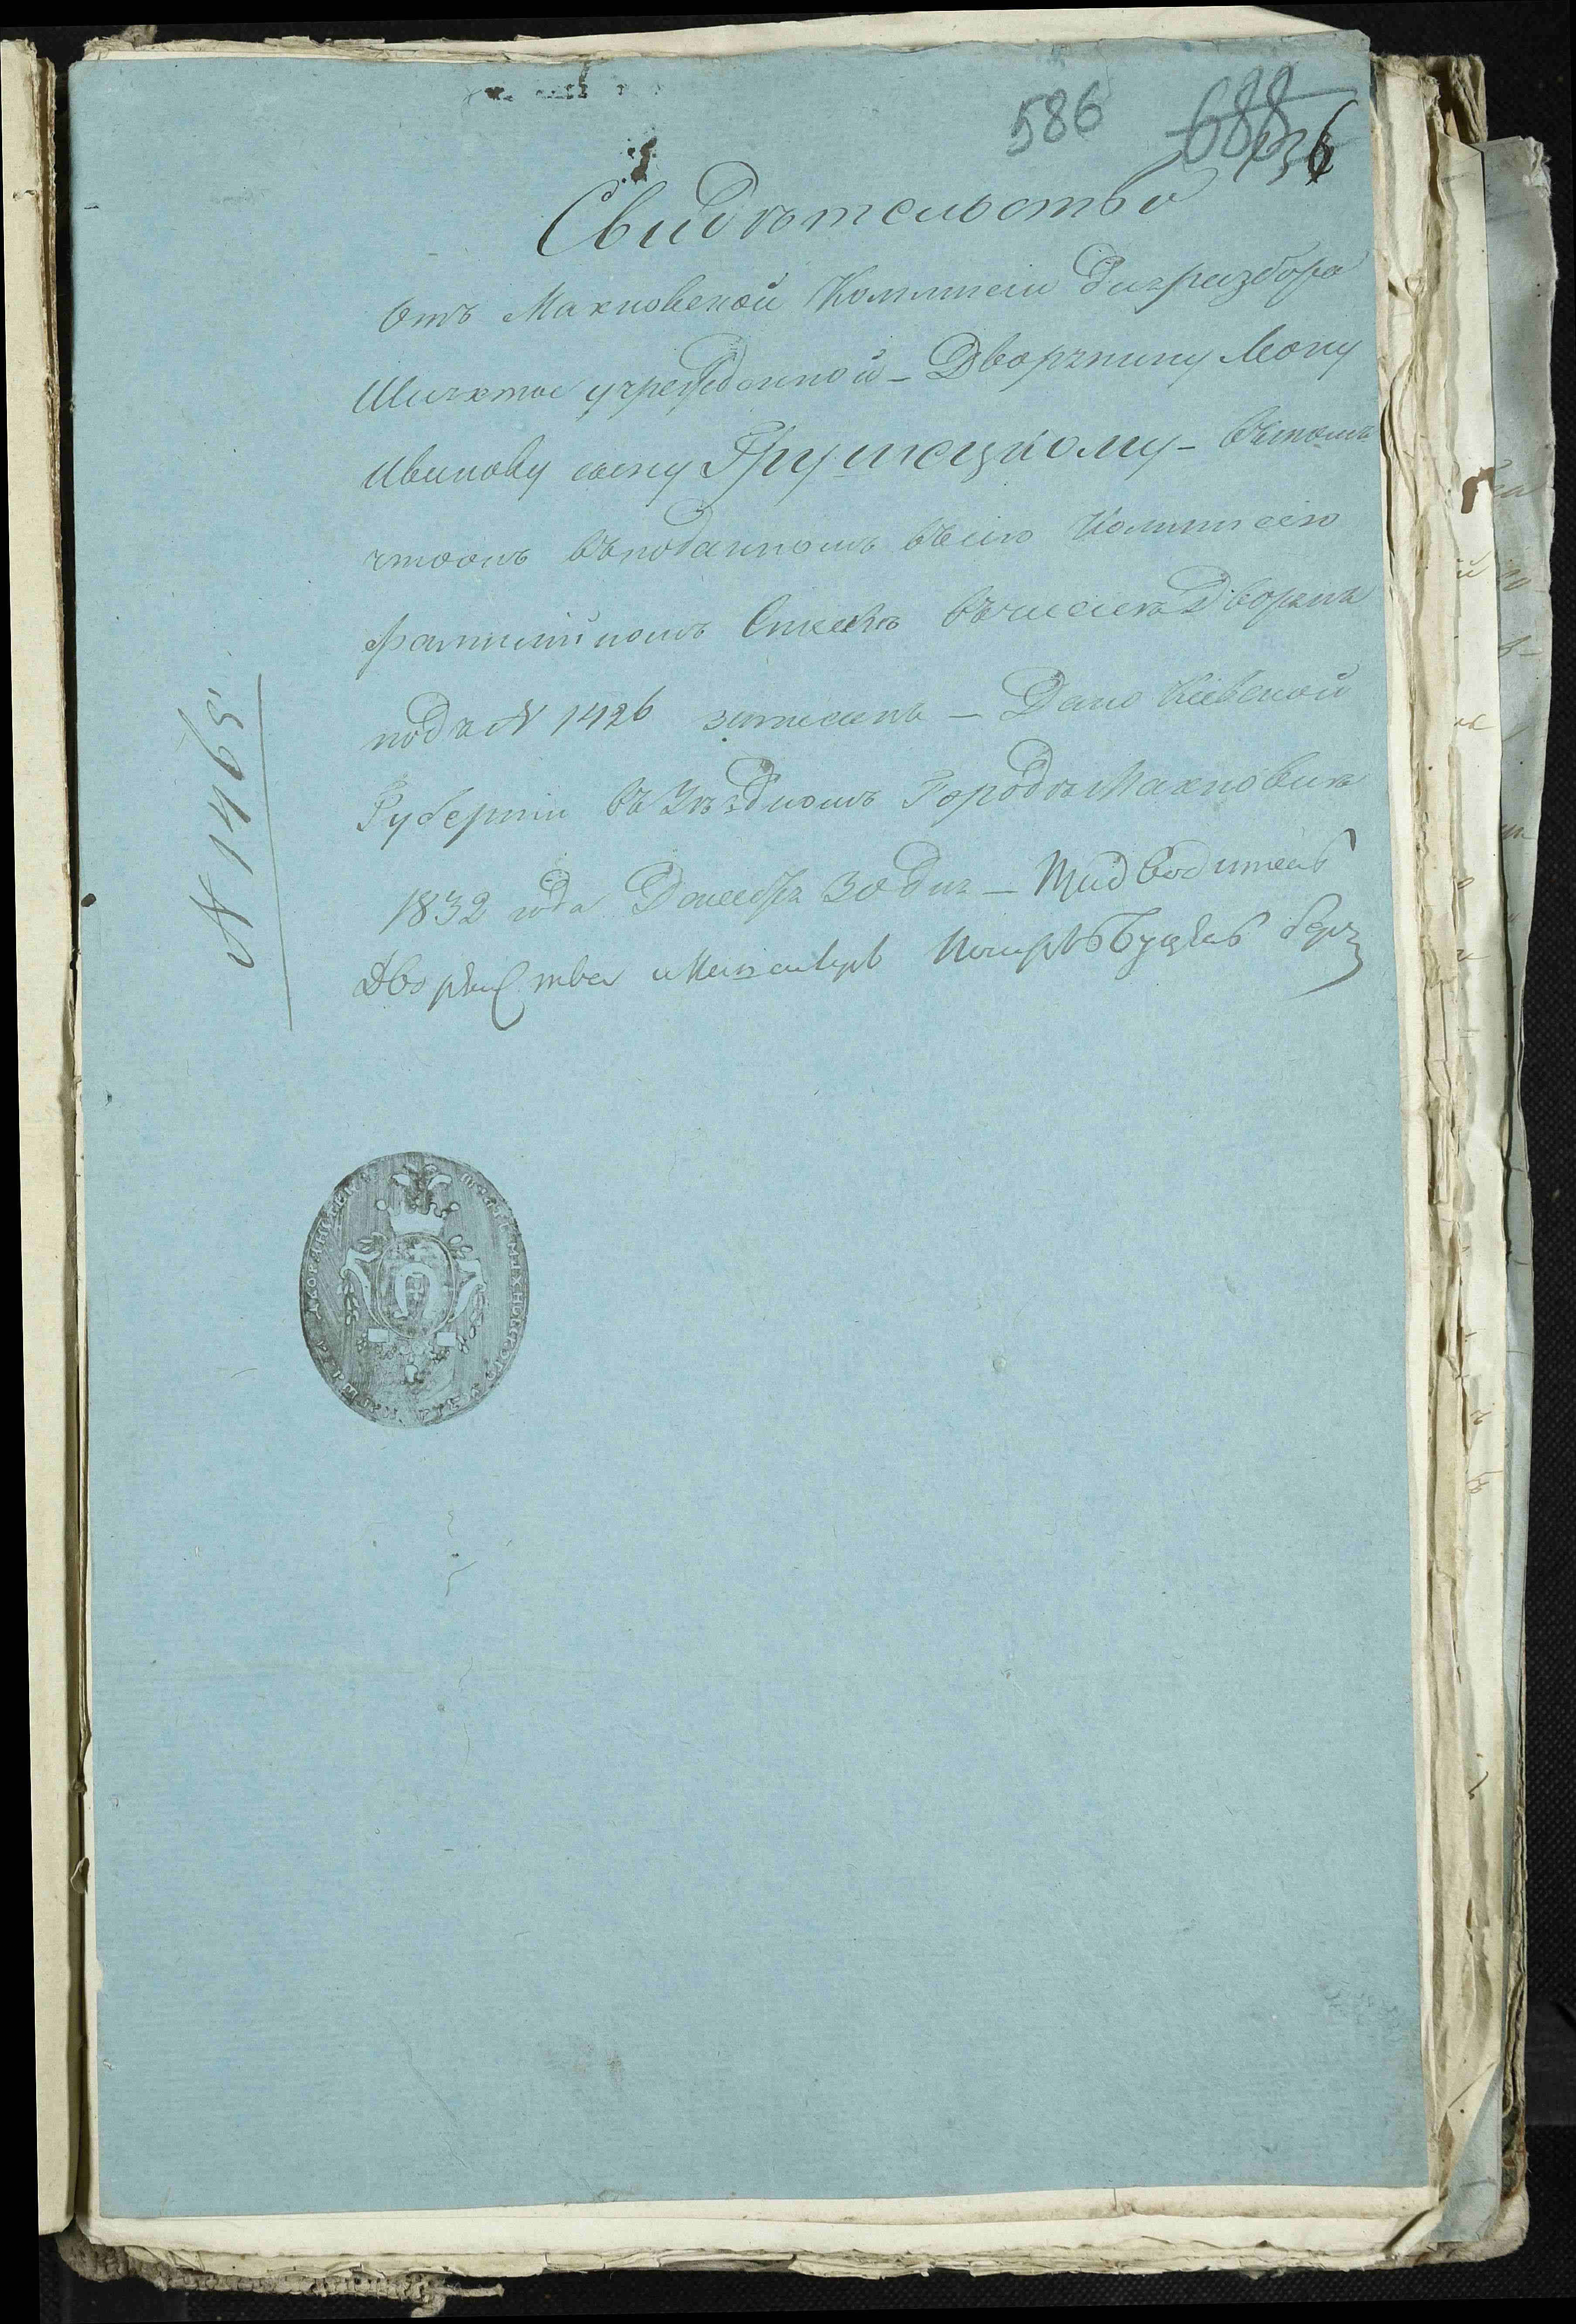 586 688 136
Свидѣтельство
Отъ Махновской Коммисіи для разбора
Шляхты учрежденной – Дворянину Леону
Иванову сыну Грушецкому – въ томъ
что онъ въ поданномъ въ сію Коммисію
фамилійномъ Спискѣ въ числѣ Дворянъ
подъ N 1426 записанъ – Дано Кіевской
Губерніи въ Уѣздномъ Городѣ Махновкѣ
1832 года Декабря 30 дня – Предводитель
Дворянства
N 1465